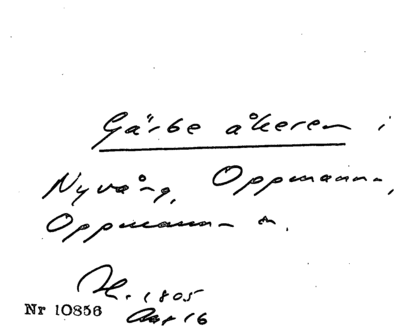 Gärbe åkeren i
Nyvång, Oppmanna,
Oppmanna sn.
H. 1805
Nr 10856 16